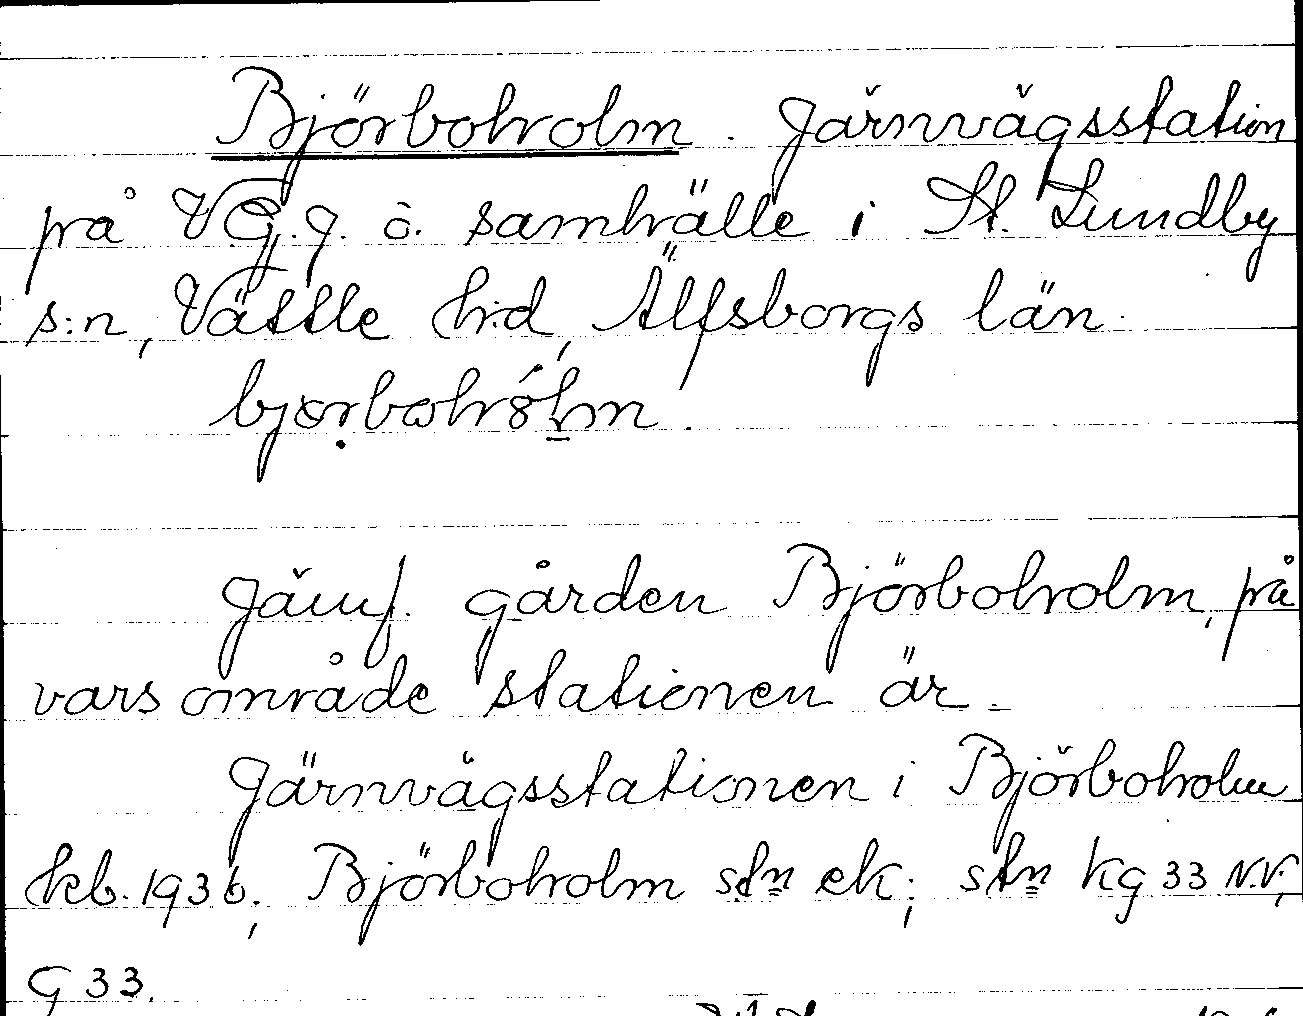 Björboholm. Järnvägsstation
på VGJ. o. samhälle i St. Lundby
s:n, Vättle h:d, Älfsborgs län.
Jämf. gården Björboholm, på
vars område stationen är.
Järnvägsstationen i Björboholm
hkb. 1936; Björboholm stn ek; stn kg 33 N.V.;
G 33.